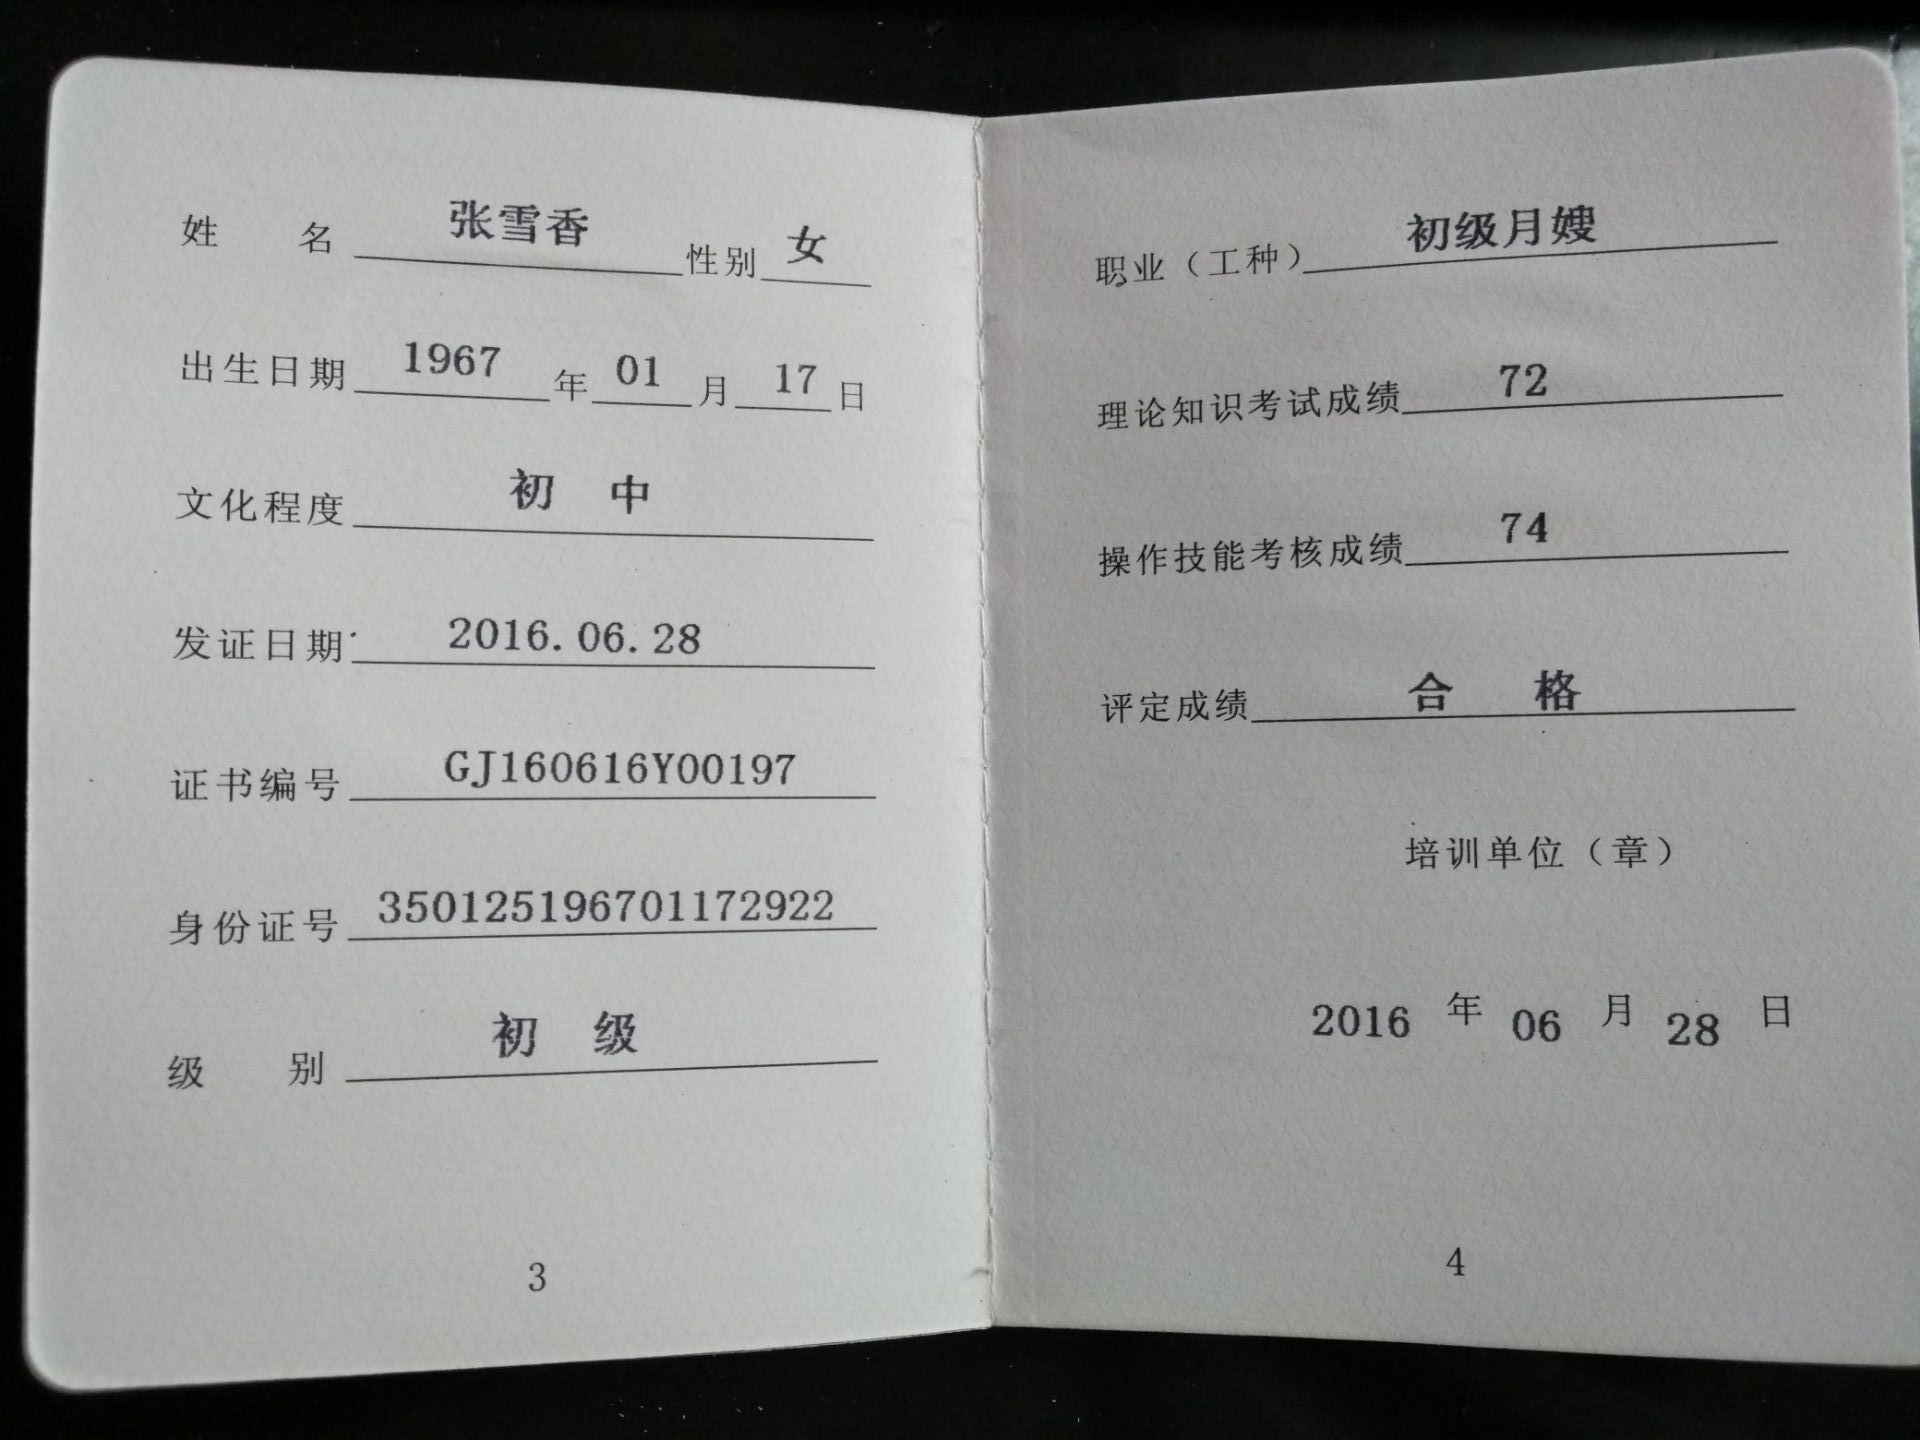 姓 名 张雪香 性别 女
出生日期 1967 年 01 月 17 日
文化程度 初 中
发证日期 2016.06.28
证书编号 GJ160616Y00197
身份证号 350125196701172922
级 别 初 级
3
职业（工种） 初级月嫂
理论知识考试成绩 72
操作技能考核成绩 74
评定成绩 合 格
培训单位（章）
2016 年 06 月 28 日
4